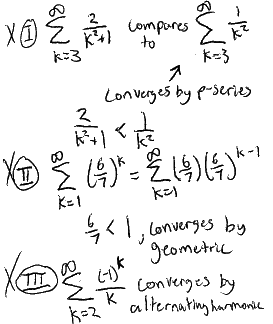 X Ⓘ ∞∑k=3 2/(k²+1) compares to ∞∑k=3 1/k²
Converges by p-series
2/(k²+1) < 1/k²
X Ⅱ ∞∑k=1 (6/7)^k = ∞∑k=1 (6/7)(6/7)^(k-1)
6/7 < 1, converges by geometric
X Ⅲ ∞∑k=2 (-1)^k/k converges by alternating harmonic